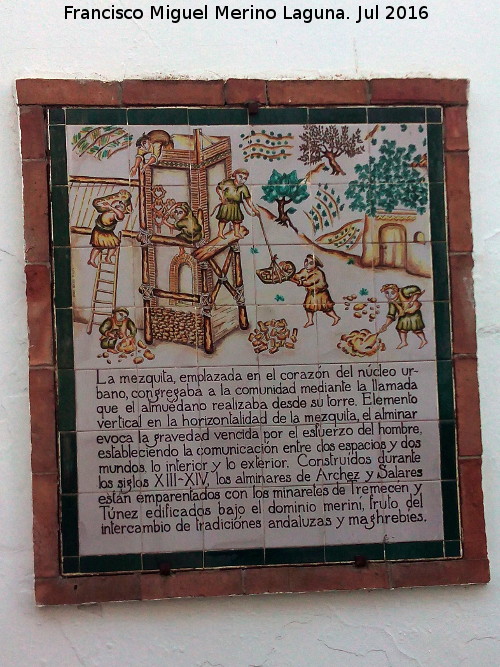 Francisco Miguel Merino Laguna. Jul 2016
La mezquita, emplazada en el corazón del núcleo ur-
bano, congregaba a la comunidad mediante la llamada
que el almuédano realizaba desde su torre. Elemento
vertical en la horizontalidad de la mezquita, el alminar
evoca la gravedad vencida por el esfuerzo del hombre,
estableciendo la comunicación entre dos espacios y dos
mundos: lo interior y lo exterior. Construídos durante
los siglos XIII-XIV, los alminares de Archez y Salares
están emparentados con los minaretes de Tremecén y
Túnez edificados bajo el dominio meriní, fruto del
intercambio de tradiciones andaluzas y maghrebíes.